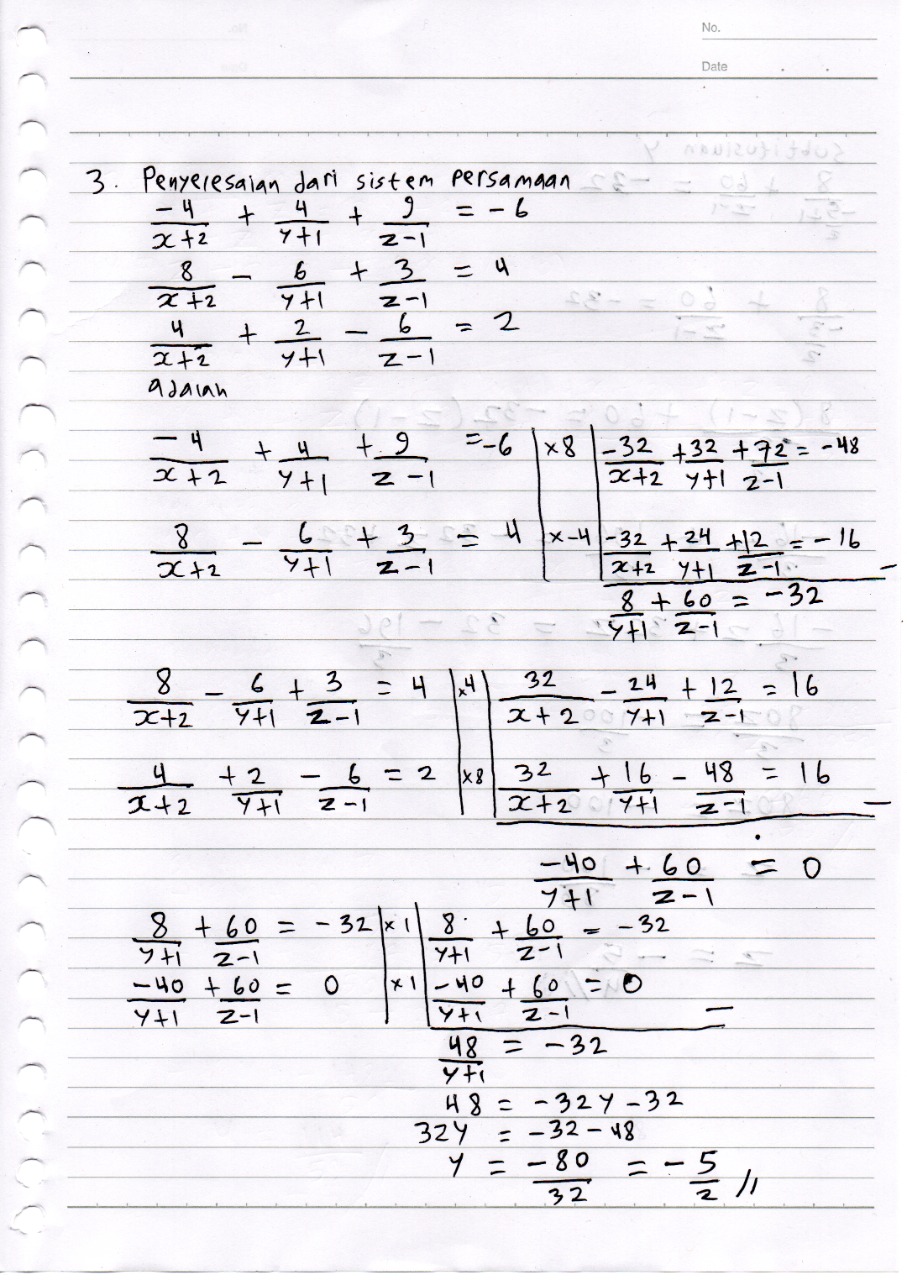 No.
Date
3. Penyelesaian dari sistem persamaan
-4/(x+2) + 4/(y+1) + 9/(z-1) = -6
8/(x+2) - 6/(y+1) + 3/(z-1) = 4
4/(x+2) + 2/(y+1) - 6/(z-1) = 2
adalah
-4/(x+2) + 4/(y+1) + 9/(z-1) = -6 | ×8 | -32/(x+2) + 32/(y+1) + 72/(z-1) = -48
8/(x+2) - 6/(y+1) + 3/(z-1) = 4 | ×-4 | -32/(x+2) + 24/(y+1) + 12/(z-1) = -16 -
8/(y+1) + 60/(z-1) = -32
8/(x+2) - 6/(y+1) + 3/(z-1) = 4 | ×4 | 32/(x+2) - 24/(y+1) + 12/(z-1) = 16
4/(x+2) + 2/(y+1) - 6/(z-1) = 2 | ×8 | 32/(x+2) + 16/(y+1) - 48/(z-1) = 16 -
-40/(y+1) + 60/(z-1) = 0
8/(y+1) + 60/(z-1) = -32 | ×1 | 8/(y+1) + 60/(z-1) = -32
-40/(y+1) + 60/(z-1) = 0 | ×1 | -40/(y+1) + 60/(z-1) = 0 -
48/(y+1) = -32
48 = -32y - 32
32y = -32 - 48
y = -80/32 = -5/2 //